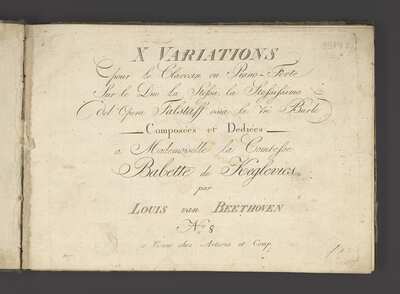 X VARIATIONS
pour le Clavecin ou Piano-Forte
Sur le Duo la Stessa, la Stessissima
del Opera Falstaff osia le tre Burle
Composées et Dediées
a Mademoiselle la Comtesse
Babette de Keglevics
par
LOUIS van BEETHOVEN
No 8
a Vienne chez Artaria et Comp